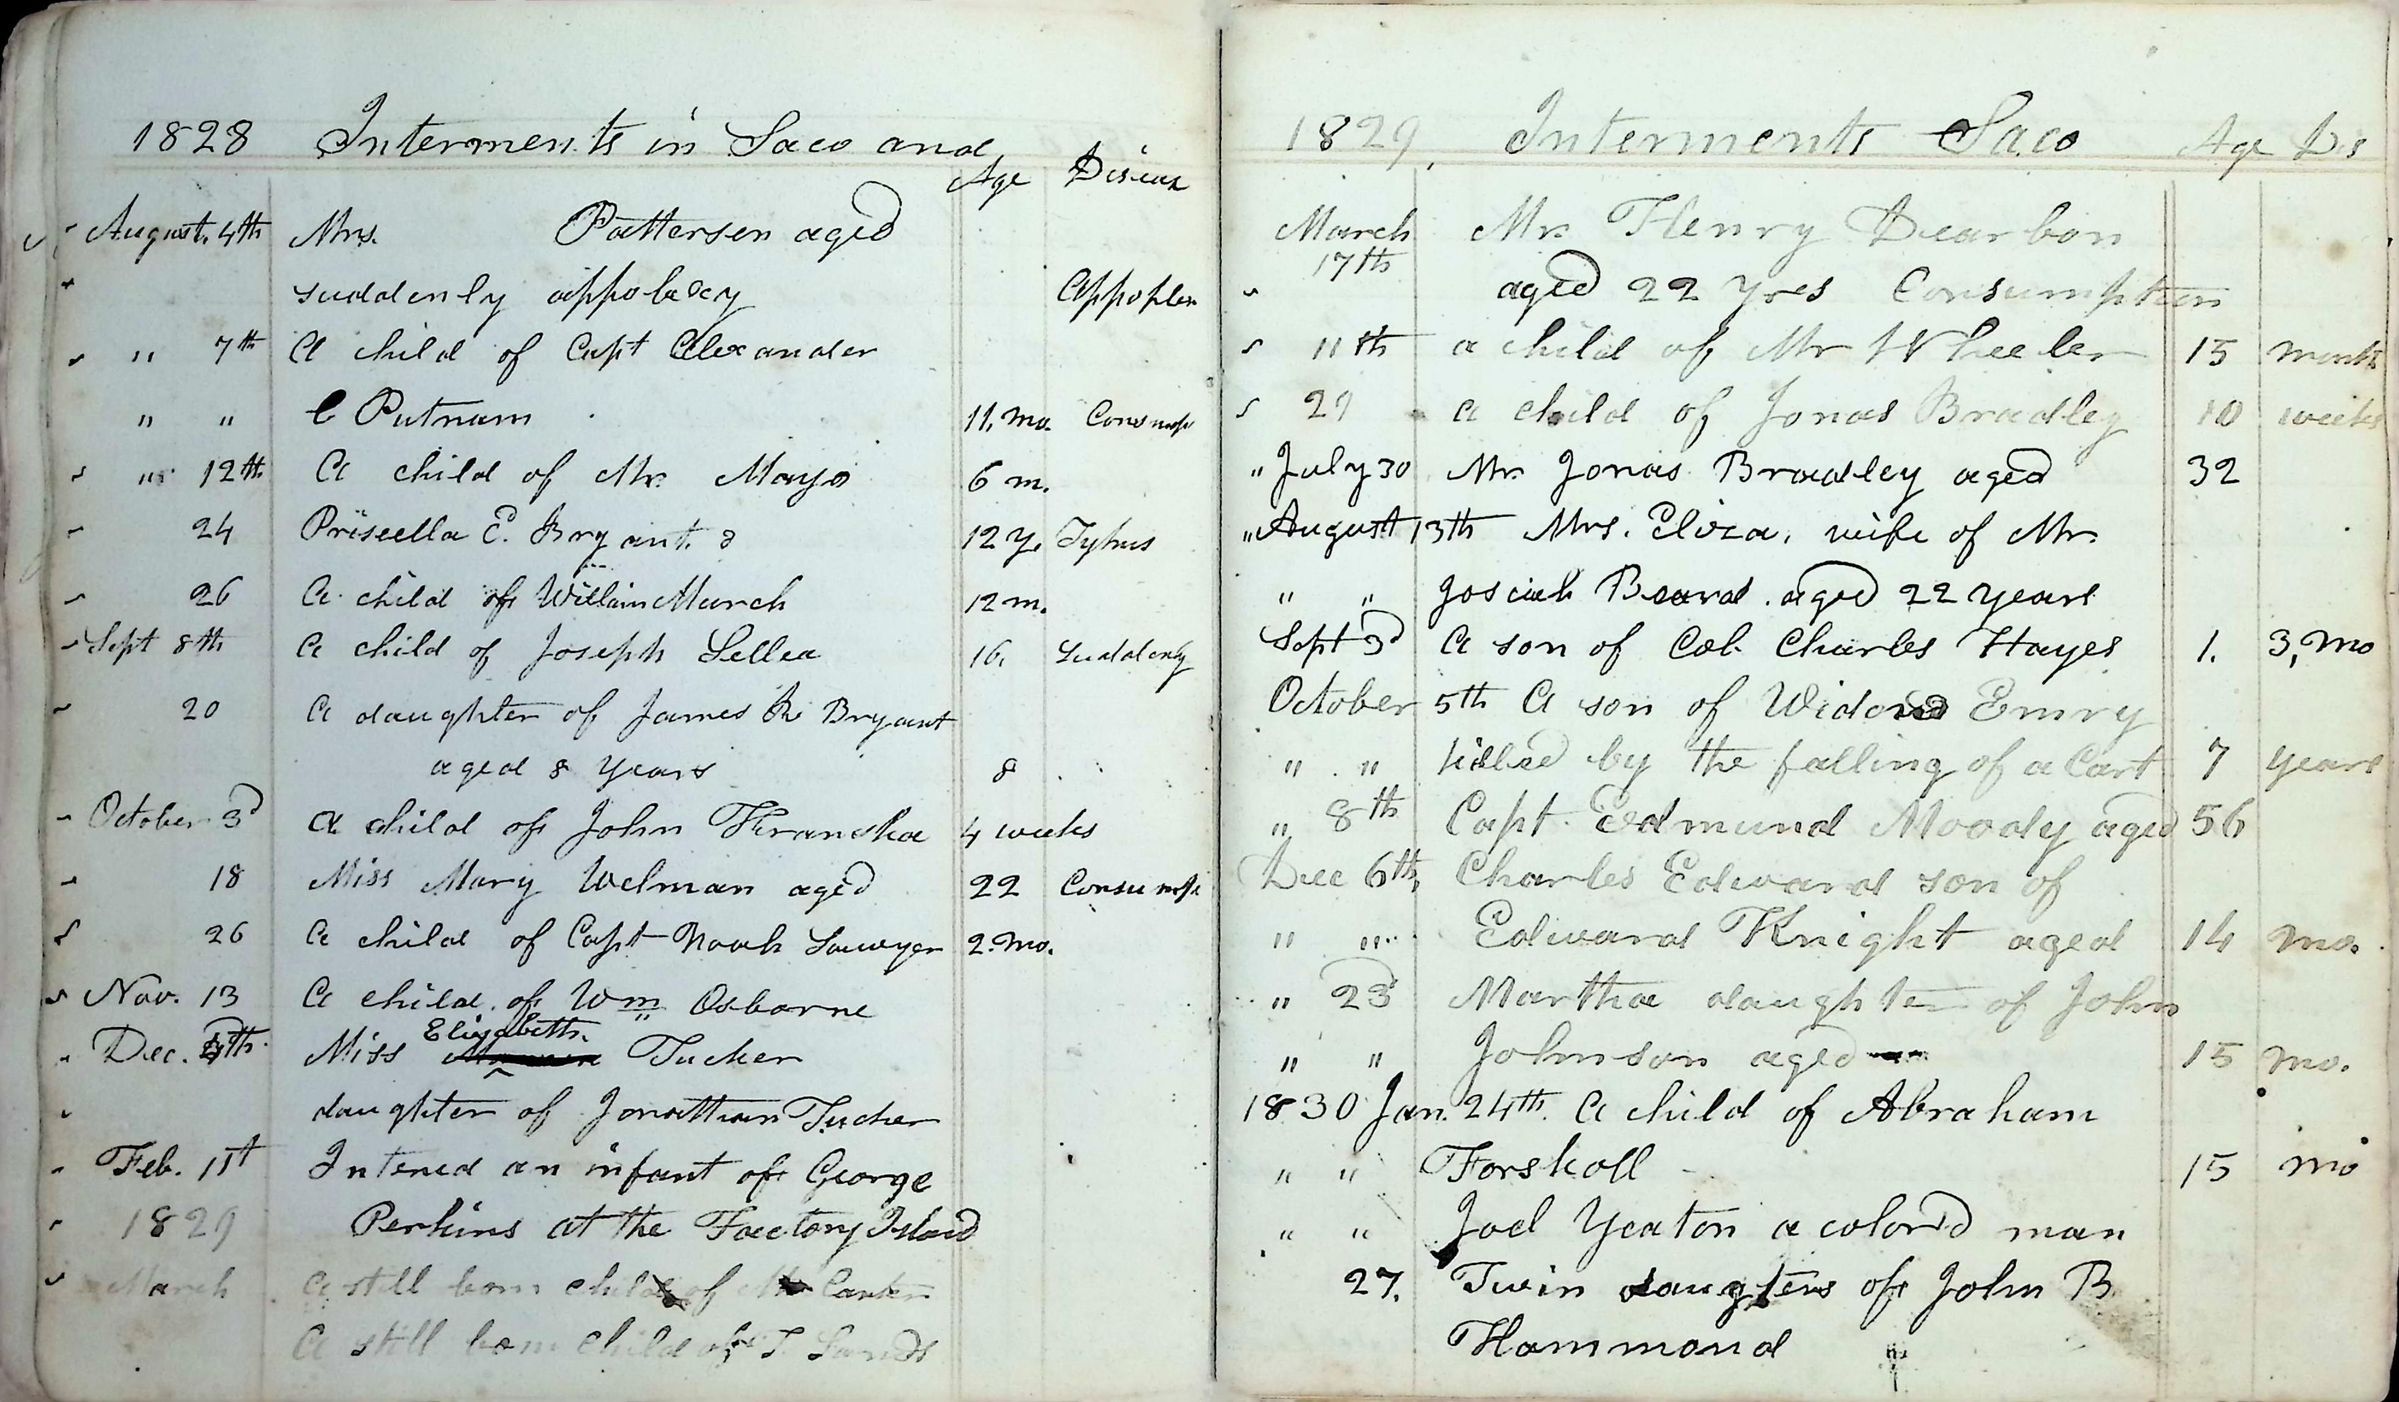 1828 Interments in Saco and
Age Diseas
August. 4th Mrs. Pattersen aged
suddenly appolexy Appoplex
" 7th A child of Capt Alexander
" " C Putnam 11, mo. Consump
" 12th A child of Mr. Mayo 6 m.
24 Priscella E. Bryant. 12 y. Typhus
26 A child of William March 12 m.
Sept 8th A child of Joseph Sellea 16. Suddenly
20 A daughter of James R Bryant
aged 8 years 8
October 3d A child of John Franska 4 weeks
18 Miss Mary Welman aged 22 Consump
26 A child of Capt Noah Sawyer 2. mo.
Nov. 13 A child of Wm Osborne
Elizabeth.
Dec. 4th Miss Tucker
daughter of Jonathan Tucker
Feb. 1st Intered an infant of George
1829 Perkins at the Factory Island
March A still born child of Carter
A still born child of T Sands
1829, Interments Saco Age Dis
March Mr. Henry Dearbon
17th aged 22 Yres Consumption
11th a child of Mr Wheeler 15 months
29 a child of Jonas Bradley 10 weeks
" July 30 Mr. Jonas Bradley aged 32
" August 13th Mrs. Eliza, wife of Mr.
" " Josiah Beard. aged 22 years
Sept 3d A son of Col. Charles Hayes 1. 3, mo
October 5th A son of Widow Emry
" " killed by the falling of a Cart 7 years
" 8th Capt. Edmund Moody aged 56
Dec 6th, Charles Edward son of
" " Edward Knight aged 14 mo.
" 23 Martha daughter of John
" " Johnson aged 15 mo.
1830 Jan. 24th. A child of Abraham
" " Forskoll 15 mo
" " Joel Yeaton a colord man
27. Twin daugters of John B
Hammond